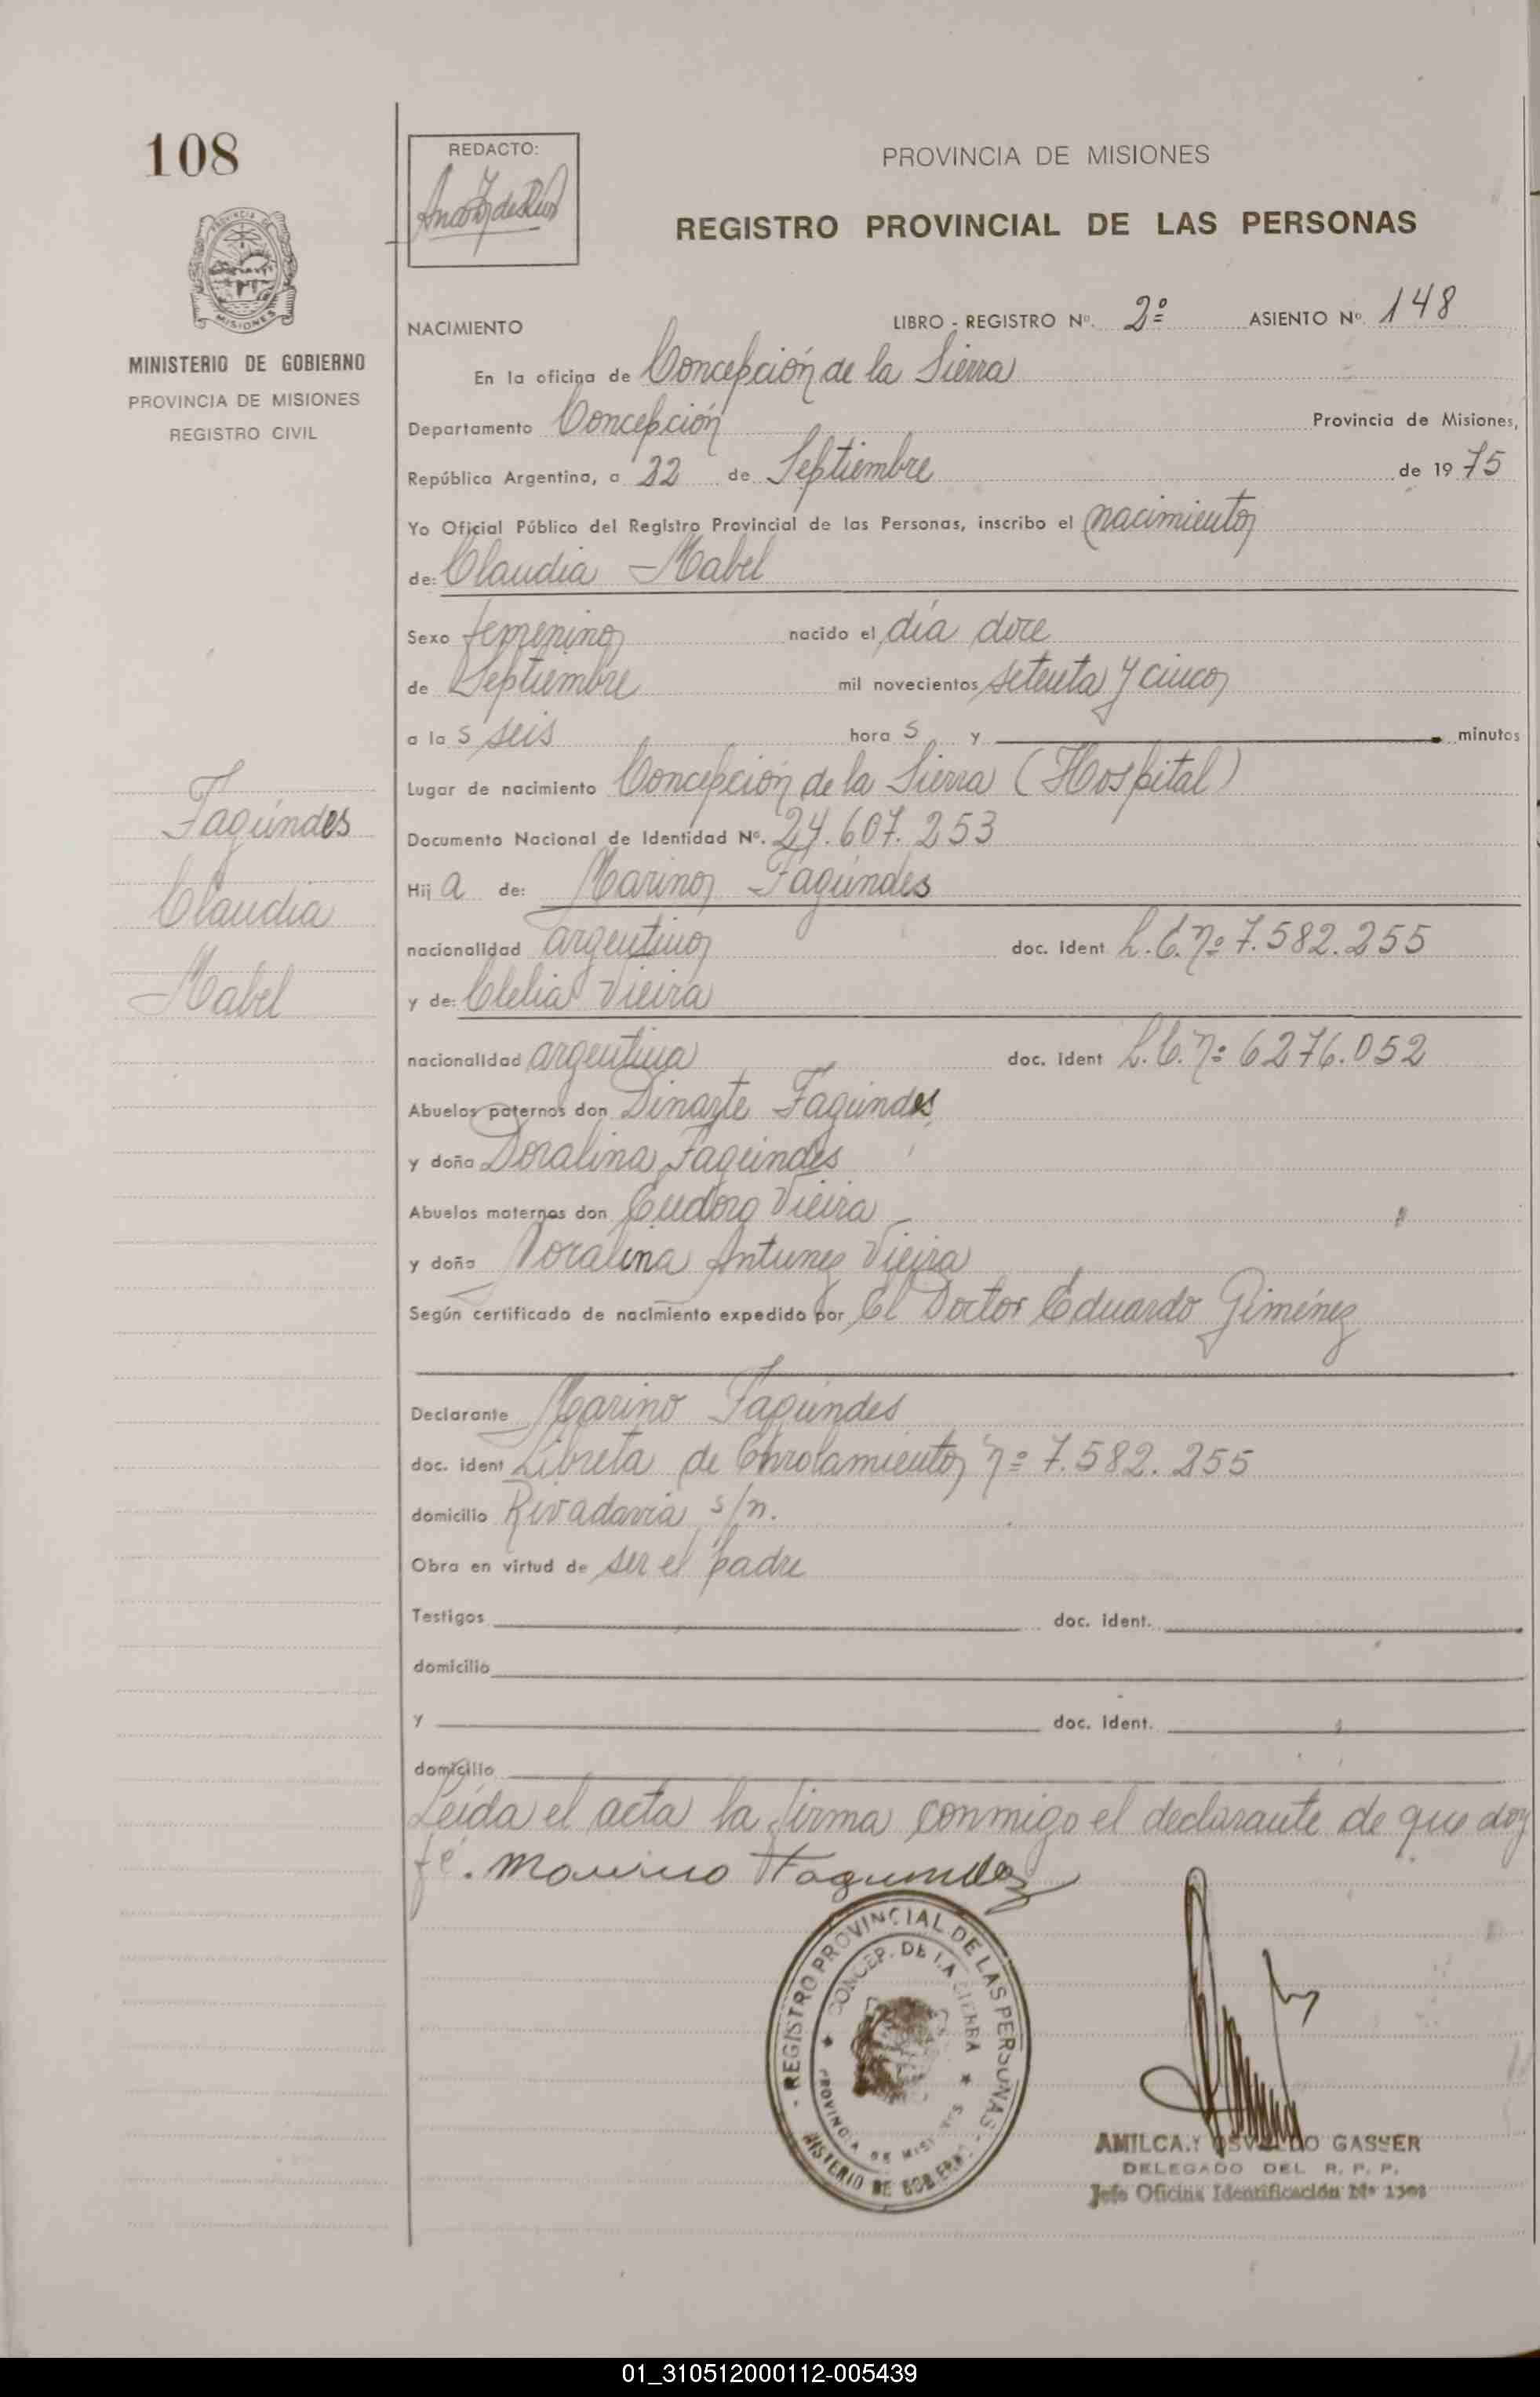 108
REDACTO:
PROVINCIA DE MISIONES
REGISTRO PROVINCIAL DE LAS PERSONAS
MISIONES
MINISTERIO DE GOBIERNO
PROVINCIA DE MISIONES
REGISTRO CIVIL
NACIMIENTO LIBRO - REGISTRO Nº. 2º ASIENTO Nº. 148
En la oficina de Concepción de la Sierra
Departamento Concepción Provincia de Misiones,
República Argentina, a 22 de Septiembre de 1975
Yo Oficial Público del Registro Provincial de las Personas, inscribo el nacimiento
de: Claudia Mabel
Sexo femenino nacido el día doce
de Septiembre mil novecientos setenta y cinco
a la s seis hora s y minutos
Lugar de nacimiento Concepción de la Sierra (Hospital)
Documento Nacional de Identidad Nº. 24.607.253
Hij a de: Marino Fagúndes
nacionalidad argentino doc. Ident L.E. nº 7.582.255
y de: Clelia Vieira
nacionalidad argentina doc. ident L.C. nº 6276.052
Abuelos paternos don Dinarte Fagúndes
y doña Doralina Fagúndes
Abuelos maternos don Eudoro Vieira
y doña Doralina Antunez Vieira
Según certificado de nacimiento expedido por El Doctor Eduardo Giménez
Fagúndes
Claudia
Mabel
Declarante Marino Fagúndes
doc. ident Libreta de Enrolamiento nº 7.582.255
domicilio Rivadavia s/n.
Obra en virtud de ser el padre
Testigos doc. ident.
domicilio
y doc. ident.
domicilio
Leída el acta la firma conmigo el declarante de que doy
fé. Marino Fagundez
REGISTRO PROVINCIAL DE LAS PERSONAS
CONCEP. DE LA SIERRA
PROVINCIA DE MISIONES
MINISTERIO DE GOBIERNO
OSVALDO
DELEGADO DEL R. P. P.
Jefe Oficina Identificación Nº
01_310512000112-005439